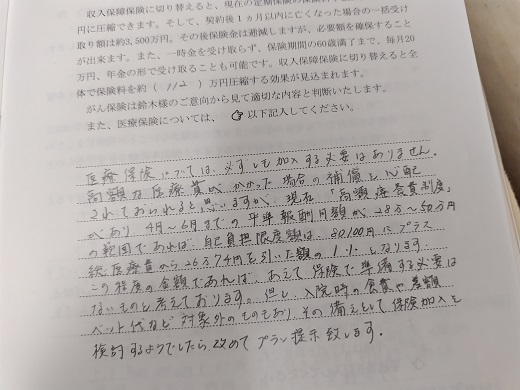 収入保障保険に切り替えると、現在の定期保険の保険料
円に圧縮できます。そして、契約後1ヵ月以内に亡くなった場合の一括受け
取り額は約3,500万円。その後保険金は逓減しますが、必要額を確保すること
が出来ます。また、一時金を受け取らず、保険期間の60歳満了まで、毎月20
万円、年金の形で受け取ることも可能です。収入保障保険に切り替えると全
体で保険料を約（ 112 ）万円圧縮する効果が見込まれます。
がん保険は鈴木様のご意向から見て適切な内容と判断いたします。
また、医療保険については、 以下記入してください。
医療保険については、必ずしも加入する必要はありません。
高額な医療費がかかった場合の補償を心配
されておられると思いますが、現在「高額療養費制度」
があり 4月〜6月までの平準報酬月額が28万〜50万円
の範囲であれば、自己負担限度額は、80100円にプラス
総医療費から26万7千円を引いた額の1%となります。
この程度の金額であれば、あえて保険で準備する必要は
ないものと考えております。但し、入院時の食費や差額
ベット代など対象外のものもあり、その備えとして保険加入を
検討するようでしたら、改めてプラン提示致します。